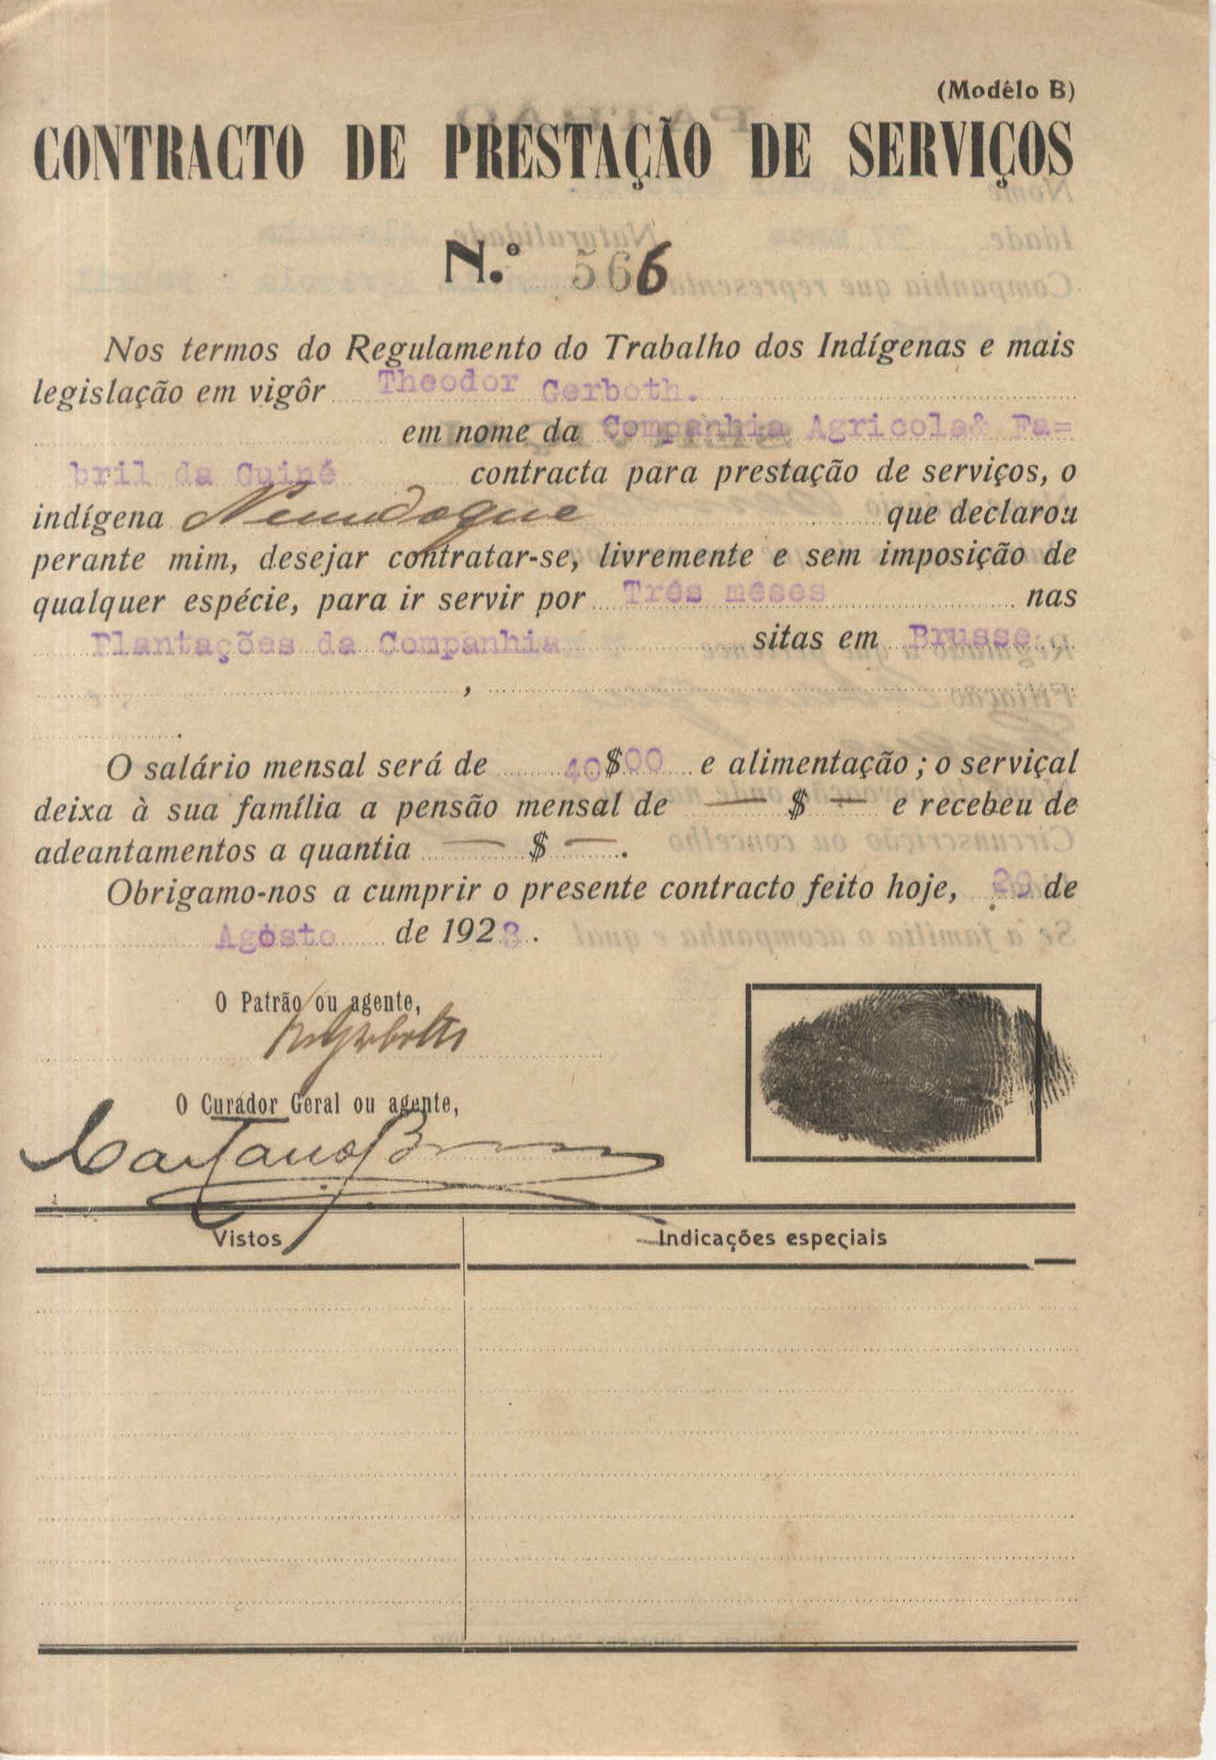 (Modêlo B)
CONTRACTO DE PRESTAÇÃO DE SERVIÇOS
N.º 566
Nos termos do Regulamento do Trabalho dos Indígenas e mais
legislação em vigôr Theodor Gerboth.
em nome da Companhia Agricola& Fa=
bril da Guiné contracta para prestação de serviços, o
indígena que declarou
perante mim, desejar contratar-se, livremente e sem imposição de
qualquer espécie, para ir servir por Três mêses nas
Plantações da Companhia sitas em Brusse.,
,
.
O salário mensal será de 40$00 e alimentação; o serviçal
deixa à sua família a pensão mensal de — $ — e recebeu de
adeantamentos a quantia — $ —.
Obrigamo-nos a cumprir o presente contracto feito hoje, de
Agôsto de 1928.
O Patrão ou agente,
O Curador Geral ou agente,
Vistos Indicações especiais